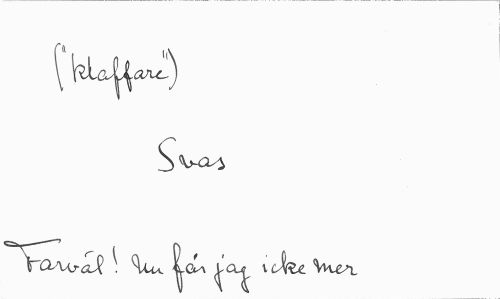 ("klaffare")
Svas
Farväl! Nu får jag icke mer